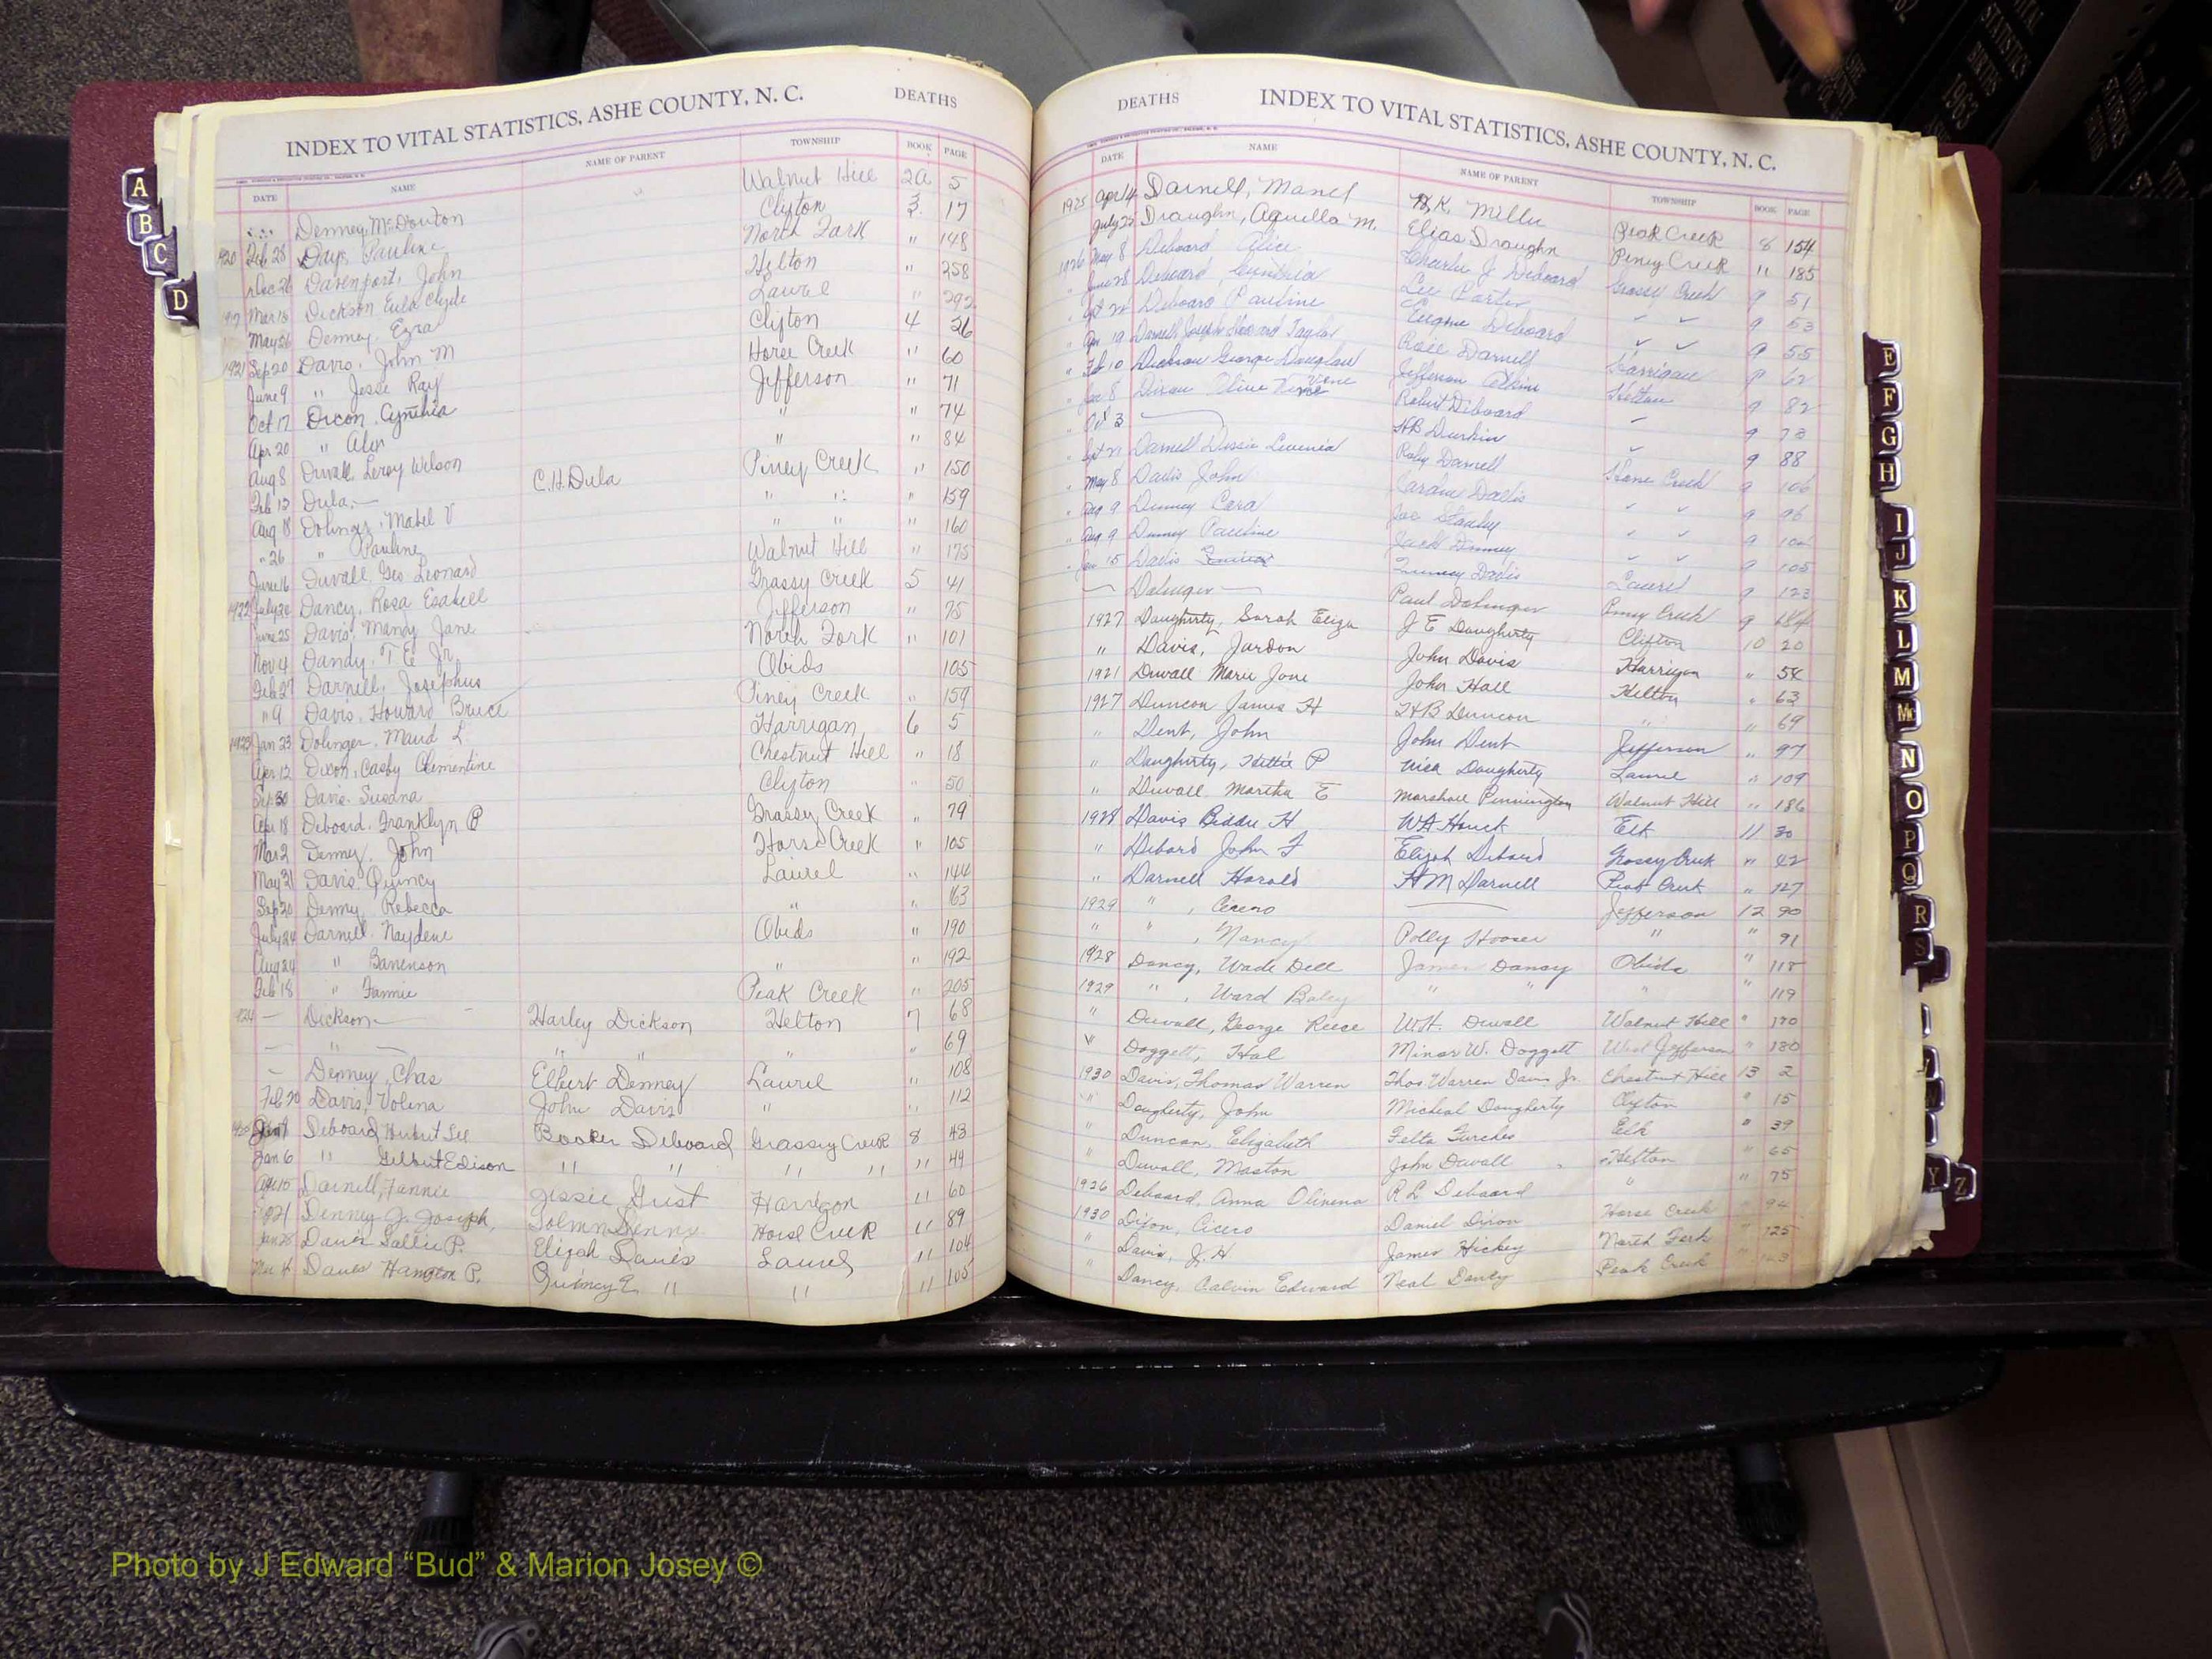 INDEX TO VITAL STATISTICS, ASHE COUNTY, N. C. DEATHS
DATE NAME NAME OF PARENT TOWNSHIP BOOK PAGE
Denney, McDouton Walnut Hill 2a 5
1920 Feb 28 Days, Pauline Clifton 3 17
Dec 26 Davenport, John North Fork " 148
Mar 18 Dickson Eula Clyde Helton " 258
May 26 Denney, Ezra Laurel " 292
1921 Sep 20 Davis, John M Clifton 4 26
June 9 " Jesse Ray Horse Creek " 60
Oct 17 Dixon, Cynthia Jefferson " 71
Apr 20 " Alex " " 74
Aug 8 Duvall, Leroy Wilson " " 84
Feb 12 Dula, — C.H. Dula Piney Creek " 150
Aug 18 Dolinger, Mabel V " " " 159
" 26 " Pauline " " " 160
June 16 Duvall, Geo Leonard Walnut Hill " 175
1922 July 20 Dancy, Rosa Esabell Grassy Creek 5 41
June 25 Davis, Mandy Jane Jefferson " 75
Nov 4 Dandy, T E Jr. North Fork " 101
Feb 27 Darnell, Josephus Obids 105
" 9 Davis, Howard Bruce Piney Creek " 159
1923 Jan 23 Dolinger, Maud L. Harrigan 6 5
Apr 12 Dixon, Casby Clementine Chestnut Hill " 18
Sep 30 Davis, Susana Clifton " 50
Apr 18 Deboard, Franklyn P Grassy Creek " 79
Mar 2 Denney, John Horse Creek " 105
May 31 Davis, Quincy Laurel " 144
Sep 20 Denny, Rebecca " " 163
July 24 Darnell, Naydene Obids " 190
Aug 24 " Banenson " " 192
Feb 18 " Fannie Peak Creek " 205
1924 — Dickson — Harley Dickson Helton 7 68
— " — " " " " 69
— Denney, Chas Elbert Denney Laurel " 108
Feb 20 Davis, Volena John Davis " " 112
Deboard, Hubert Lee Booker Deboard Grassy Creek 8 43
Jan 6 " Gilbert Edison " " " " " 49
Apr 15 Darnell, Fannie Jessie Grist " 60
Denney G. Joseph, Horse Creek " 89
Jan 28 Davis Sallie P. Elijah Davis Laurel " 104
Davis Hampton P. Quincy E. " " " 105
DEATHS INDEX TO VITAL STATISTICS, ASHE COUNTY, N. C.
DATE NAME NAME OF PARENT TOWNSHIP BOOK PAGE
1925 Apr 14 Darnell, Manel Peak Creek 8 154
July 25 Draughn, Aquilla M. Elias Draughn Piney Creek " 185
1926 May 8 Deboard Alice Charlie J Deboard Grassy Creek 9 51
June 28 Deboard, Cynthia Lee Porter ✓ ✓ 9 53
Deboard Pauline Eugene Deboard ✓ ✓ 9 55
" Apr 19 Darnell Joseph Howard Taylor Darnell Harrigan 9 62
" Feb 10 Dickson George Douglas Jefferson Helton 9 82
" Jan 8 Dixon Robert Deboard 9 73
" Oct 3 — HB Durkin ✓ 9 88
" Sept 21 Darnell Dessie Roby Darnell Horse Creek 9 106
" May 8 Davis John Davis ✓ ✓ 9 96
" Aug 9 Denney Cora Joe Stanley ✓ ✓ 9
" Aug 9 Denney Pauline Jack Denney ✓ ✓ 9 105
" Jan 15 Davis Quincy Davis Laurel 9 123
— Dolinger — Paul Dolinger Piney Creek 9 184
1927 Daugherty, Sarah Eliza J E Daugherty Clifton 10 20
" Davis, Jardon John Davis Harrigan " 54
1921 Duvall Marie Jane John Hall Helton " 63
1927 Duncan James H H B Duncan " " 69
" Dent, John John Dent Jefferson " 97
" Daugherty, Hettie P Daugherty Laurel " 109
" Duvall Martha E Marshall Pennington Walnut Hill " 186
1928 Davis Biddie H WA Houck Elk 11 30
" Debord John F Elijah Debord Grassy Creek " 42
" Darnell Harold H M Darnell Peak Creek " 127
1929 " , Cicero — Jefferson 12 90
" " , Nancy Polly Hooser " " 91
1928 Dancy, Wade Dell James Dancy Obids " 118
1929 " , Ward Baley " " " " 119
" Duvall, George Reece W.H. Duvall Walnut Hill " 170
" Doggett, Hal Minor W. Doggett West Jefferson " 180
1930 Davis, Thomas Warren Thos. Warren Davis Jr. Chestnut Hill 13 2
" Dougherty, John Micheal Dougherty Clifton " 15
" Duncan, Elizabeth Felts Elk " 39
" Duvall, Maston John Duvall Helton " 65
1926 Deboard, Anna Olivena R L Deboard " " 75
1930 Dixon, Cicero Daniel Dixon Horse Creek " 94
" Davis, J. H James Hickey North Fork " 125
" Dancy, Calvin Edward Neal Dancy Peak Creek
A
B
C
D
E
F
G
H
I
J
K
L
M
Mc
N
O
P
Q
R
S
W
Y
Z
VITAL STATISTICS BIRTHS 1963
Photo by J Edward “Bud” & Marion Josey ©